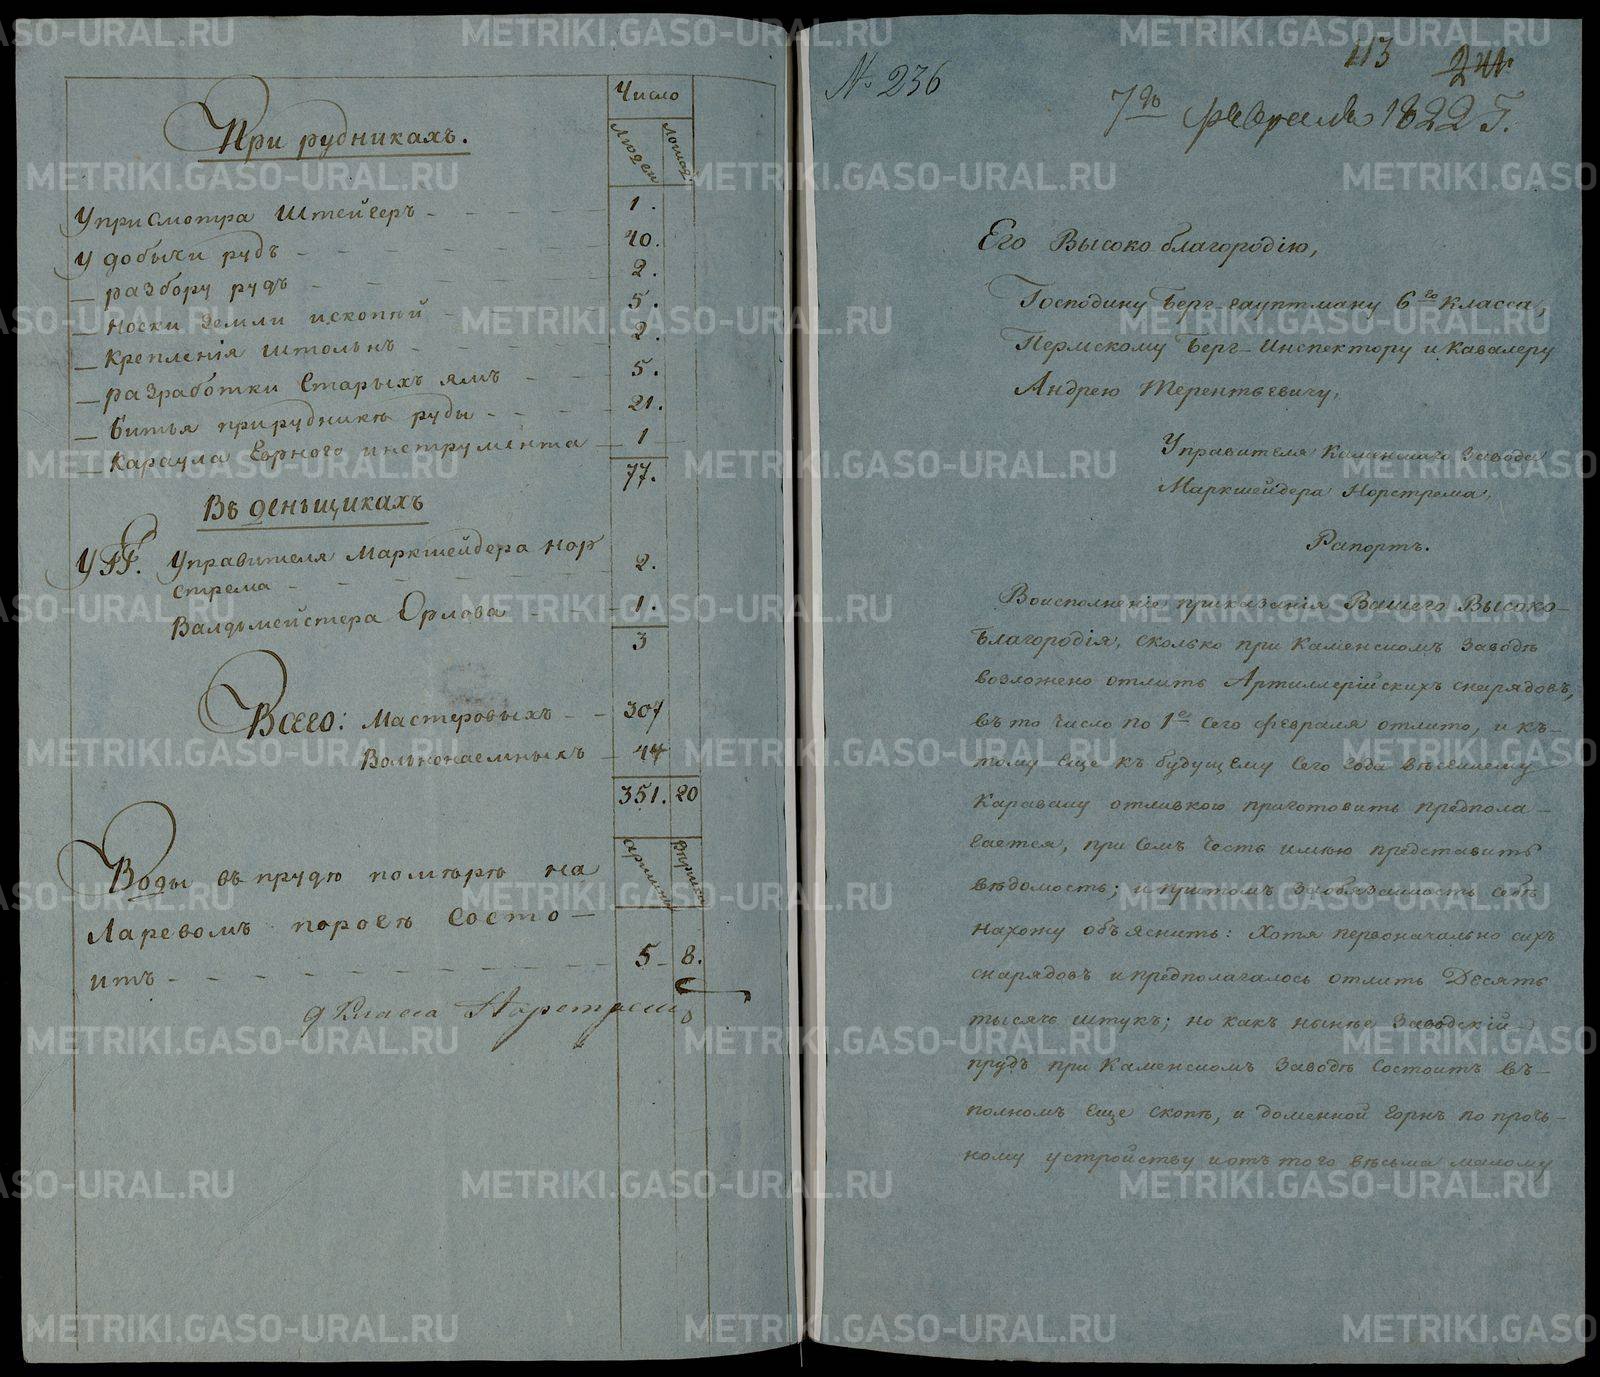 Число
Людей
Лошад.
При рудникахъ.
У присмотра Штейгеръ 1.
У добычи рудъ 40.
— разбору рудъ 2.
— носки земли ископной 5.
— крепленія штольнъ 2.
— разработки Старыхъ ямъ 5.
— битья при рудникѣ руды 21.
— караула Горного инструмента 1
77.
Въ деньщикахъ
У ГГ. Управителя Маркшейдера Нор
стрема 2.
Валдмейстера Орлова 1.
3
Всего: Мастеровыхъ 307
Вольнонаемныхъ 44
351. 20
аршины
Вершки
Воды въ прудѣ по мѣрѣ на
Ларевомъ пороге состо—
итъ 5 8.
9 Класса Норстрем
№ 236
113
241
7го февраля 1822 Г.
Его Высокоблагородію,
Господину Берг-гауптману 6го класса,
Пермскому Берг-Инспектору и Кавалеру
Андрею Терентьевичу,
Управителя Каменского Завода
Маркшейдера Норстрема,
Рапортъ.
Во исполненіе приказанія Вашего Высоко-
благородія, сколько при Каменскомъ Заводѣ
возложено отлить Артиллерійскихъ снарядовъ,
въ то число по 1е сего февраля отлито, и къ-
тому еще къ будущему сего года вѣсеннему
Каравану отливкою приготовить предпола-
гается, при семъ честь имѣю представить
вѣдомость; и притомъ заобязанность себѣ
нахожу объяснить: Хотя первоначально сихъ
снарядовъ и предполагалось отлить Десять
тысячь штукъ; но какъ нынѣ Заводскій
прудъ при Каменскомъ Заводѣ состоитъ въ-
полномъ еще скопѣ, и доменной горнъ по проч-
ному устройству и отъ того вѣсьма малому